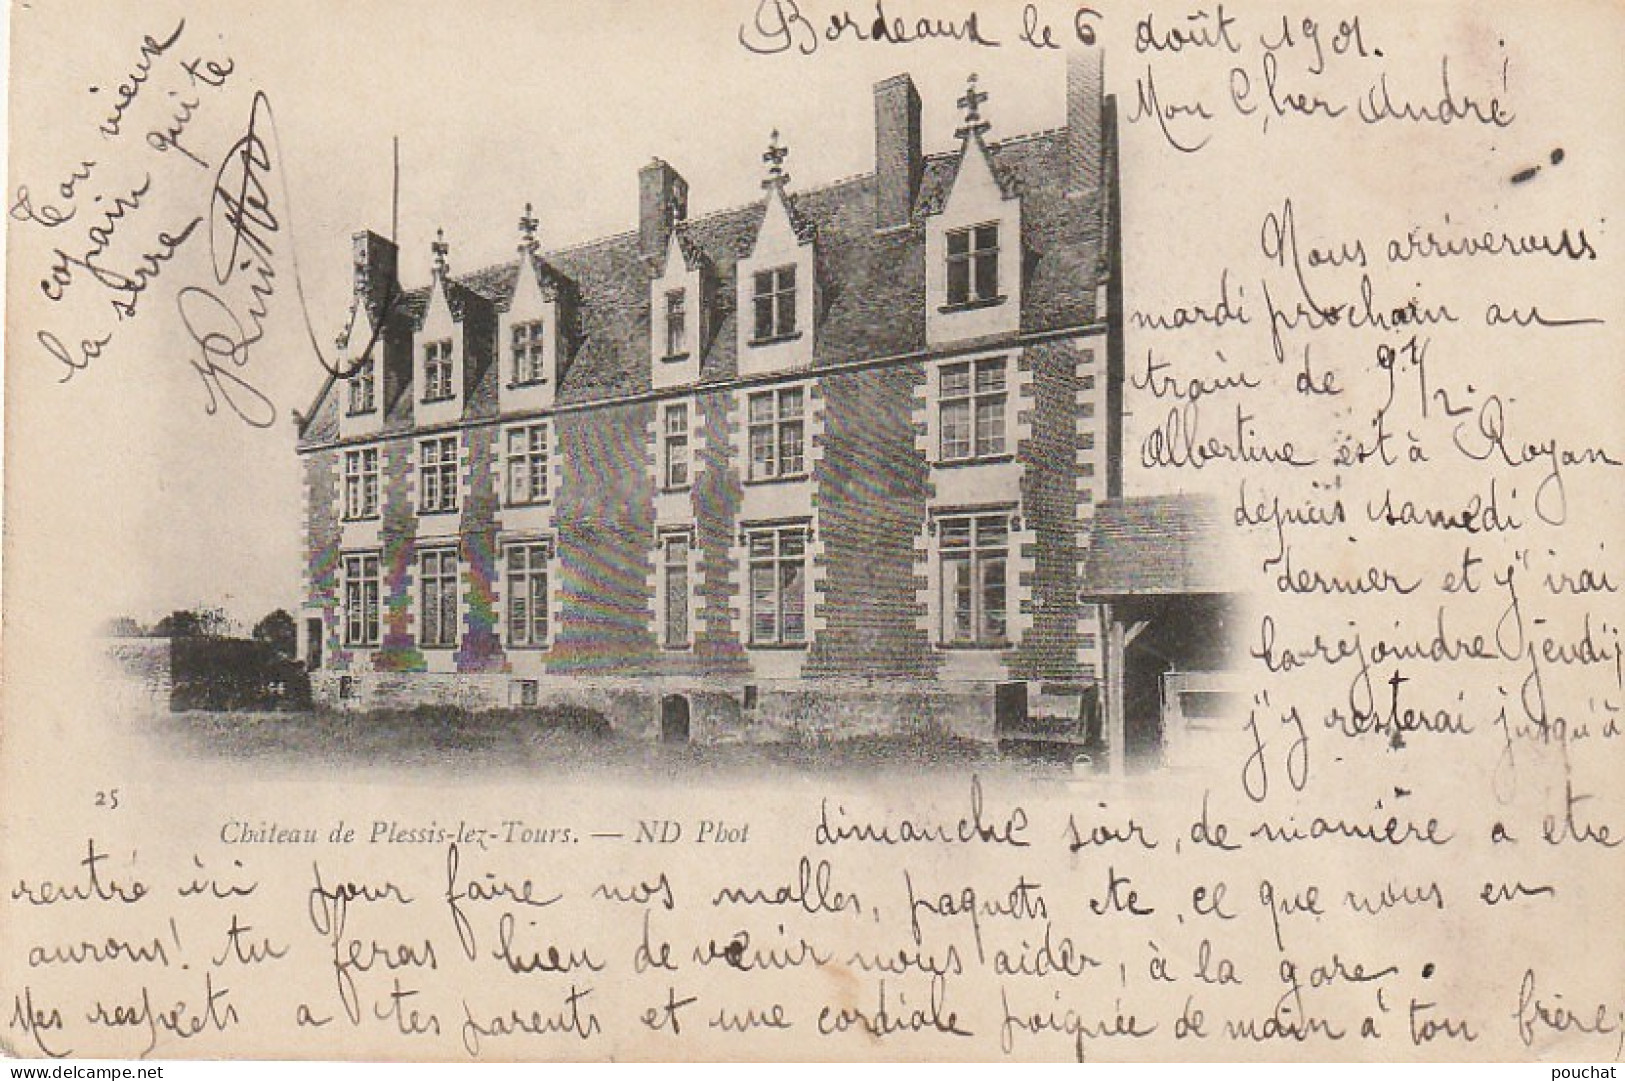 Bordeaux le 6 août 1901.
Mon Cher André!
Nous arriverons
mardi prochain au
train de 9 1/2.
Albertine est à Royan
depuis samedi
dernier et j'irai
la rejoindre jeudi;
j'y resterai jusqu'à
dimanche soir, de manière a être
rentré ici pour faire nos malles, paquets etc, ce que nous en
aurons! tu feras bien de venir nous aider, à la gare.
Mes respects a tes parents et une cordiale poignée de main à ton frère;
Ton vieux
copain qui te
la serre
25
Château de Plessis-lez-Tours. — ND Phot
pouchat